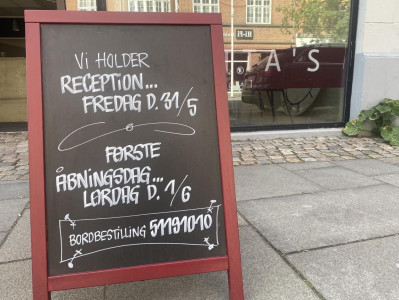 Vi HOLDER
RECEPTION...
FREDAG D. 31/5
FØRSTE
ÅBNINGSDAG...
LØRDAG D. 1/6
BORDBESTILLING 51191010
TAS